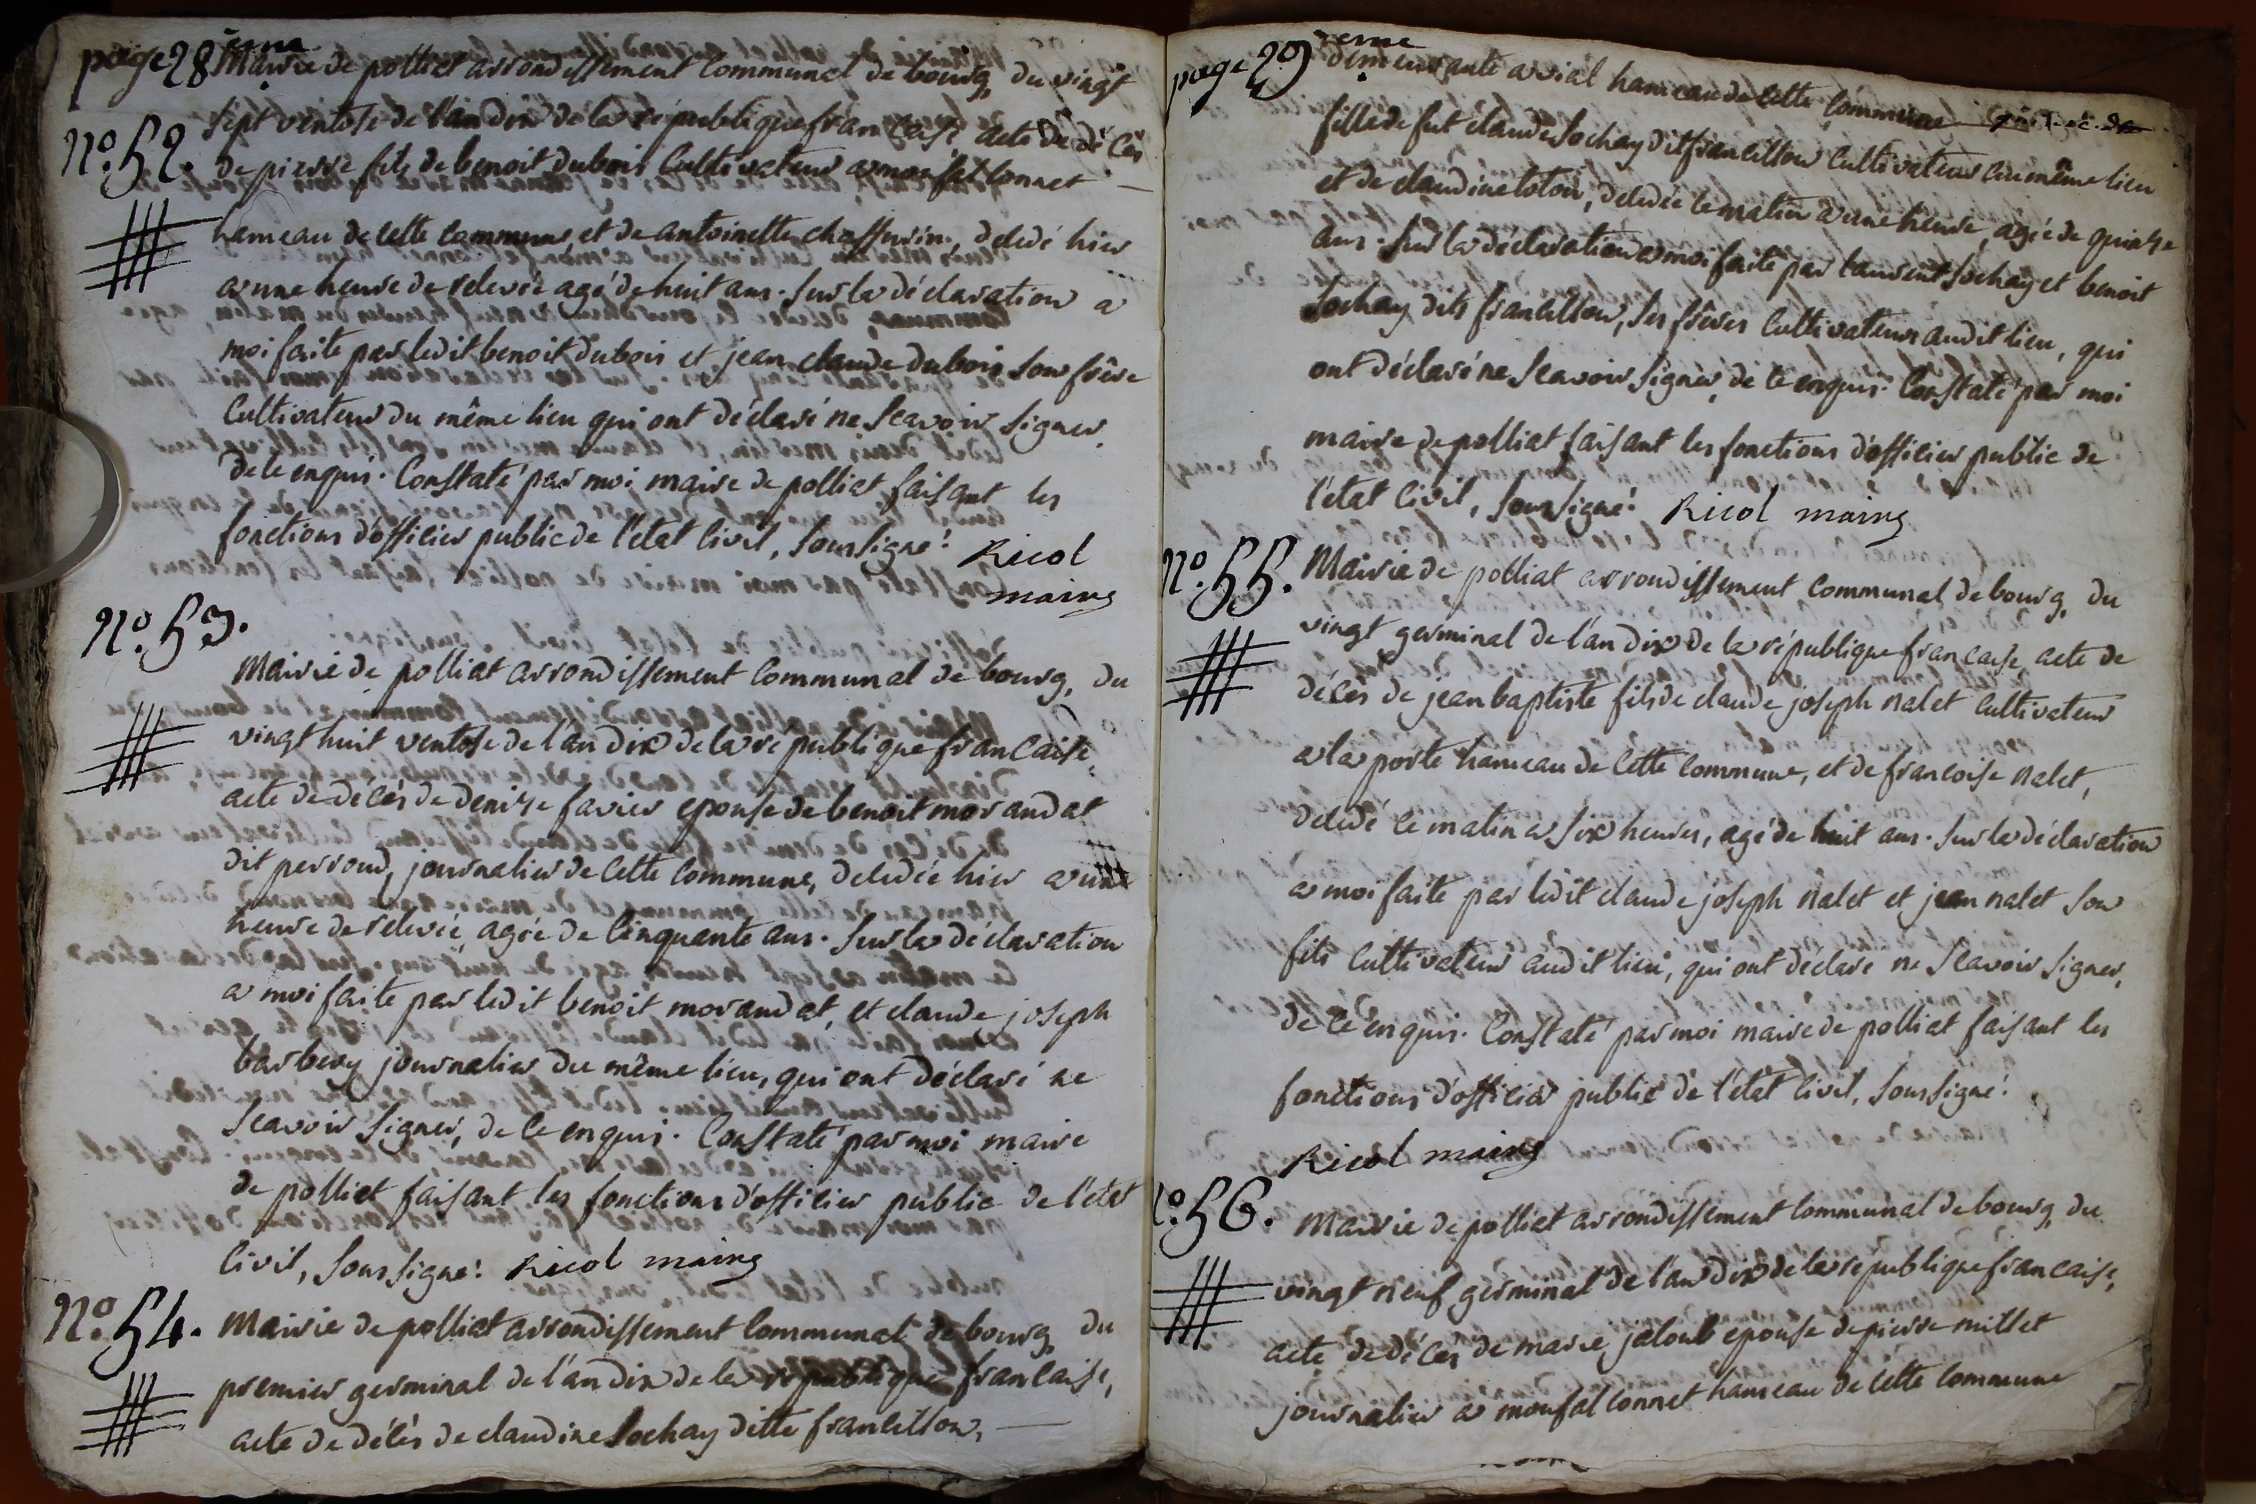 page 28eme
Mairie de polliat arrondissement communal de bourg, du vingt
N° 52. sept ventose de l'an dix de la république francaise, acte de décès
de pierre fils de benoit dubois cultivateur a monfalconnet
hameau de cette commune, et de antoinette chossurin, deledé hier
a une heure de relevée agé de huit ans. sur la déclaration a
moi faite par ledit benoit dubois et jean claude dubois son frère
cultivateur du même lieu qui ont déclaré ne scavoir signer,
de ce enquis. Constaté par moi maire de polliat faisant les
fonctions d'officier public de l'état civil, soussigné: Ricol
maire
N° 53.
Mairie de polliat arrondissement communal de bourg, du
vingt huit ventose de l'an dix de la republique francaise,
acte de décès de denize favier epouse de benoit morandat
dit perroud, journalier de cette commune, deledée hier a une
heure de relevée, agée de cinquante ans. sur la déclaration
a moi faite par ledit benoit morandat, et claude joseph
barbery journalier du même lieu, qui ont déclaré ne
scavoir signer, de ce enquis. Constaté par moi maire
de polliat faisant les fonctions d'officier public de l'état
civil, soussigné: Ricol maire
N° 54. Mairie de polliat arrondissement communal de bourg, du
premier germinal de l'an dix de la république francaise,
acte de décès de claudine sochay ditte francillon,
page 29eme
demeurante a vial hameau de cette commune
fille de fut claude sochay dit francillon cultivateur au même lieu
et de claudine toton, deledée ce matin a une heure, agée de quinze
ans. sur la déclaration a moi faite par laurent sochay et benoit
sochay dits francillon, ses frères cultivateurs audit lieu, qui
ont déclaré ne scavoir signer, de ce enquis. Constaté par moi
maire de polliat faisant les fonctions d'officier public de
l'état civil, soussigné: Ricol maire
N° 55. Mairie de polliat arrondissement communal de bourg, du
vingt germinal de l'an dix de la république francaise acte de
décès de jean baptiste fils de claude joseph nalet cultivateur
a la porte hameau de cette commune, et de francoise nalet,
deledé ce matin a six heures, agé de huit ans. sur la déclaration
a moi faite par ledit claude joseph nalet et jean nalet son
fils cultivateur audit lieu, qui ont déclaré ne scavoir signer,
de ce enquis. Constaté par moi maire de polliat faisant les
fonctions d'officier public de l'état civil, soussigné:
Ricol maire
N° 56. Mairie de polliat arrondissement communal de bourg, du
vingt neuf germinal de l'an dix de la republique francaise,
acte de décès de marie jaloub epouse de pierre millet
journalier a monfalconnet hameau de cette commune